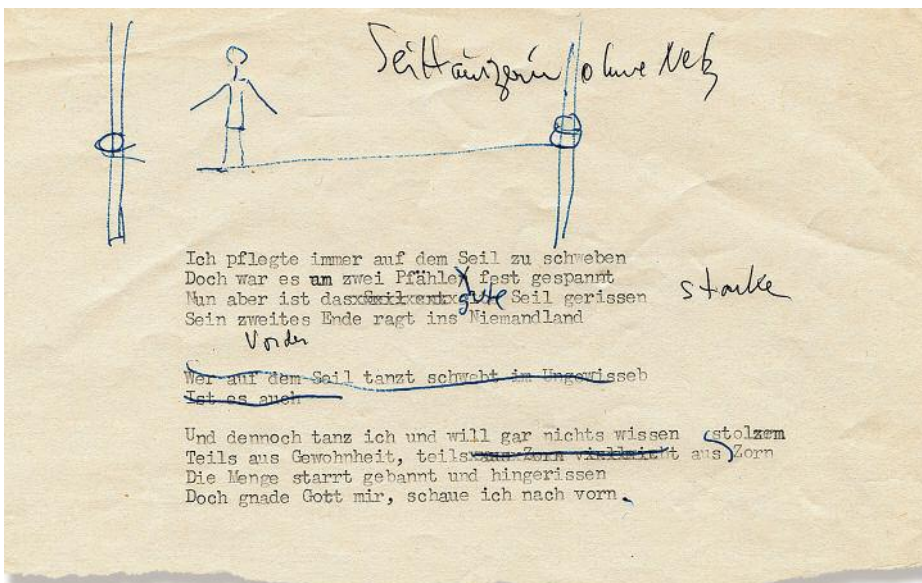 Seiltänzerin ohne Netz
Ich pflegte immer auf dem Seil zu schweben
Doch war es um zwei Pfähle fest gespannt
Nun aber ist das gute Seil gerissen
starke
Sein zweites Ende ragt ins Niemandland
Vorder
Wer auf dem Seil tanzt schwebt im Ungewisseb
Ist es auch
Und dennoch tanz ich und will gar nichts wissen stolzem
Teils aus Gewohnheit, teils aus Zorn vielleicht aus Zorn
Die Menge starrt gebannt und hingerissen
Doch gnade Gott mir, schaue ich nach vorn.